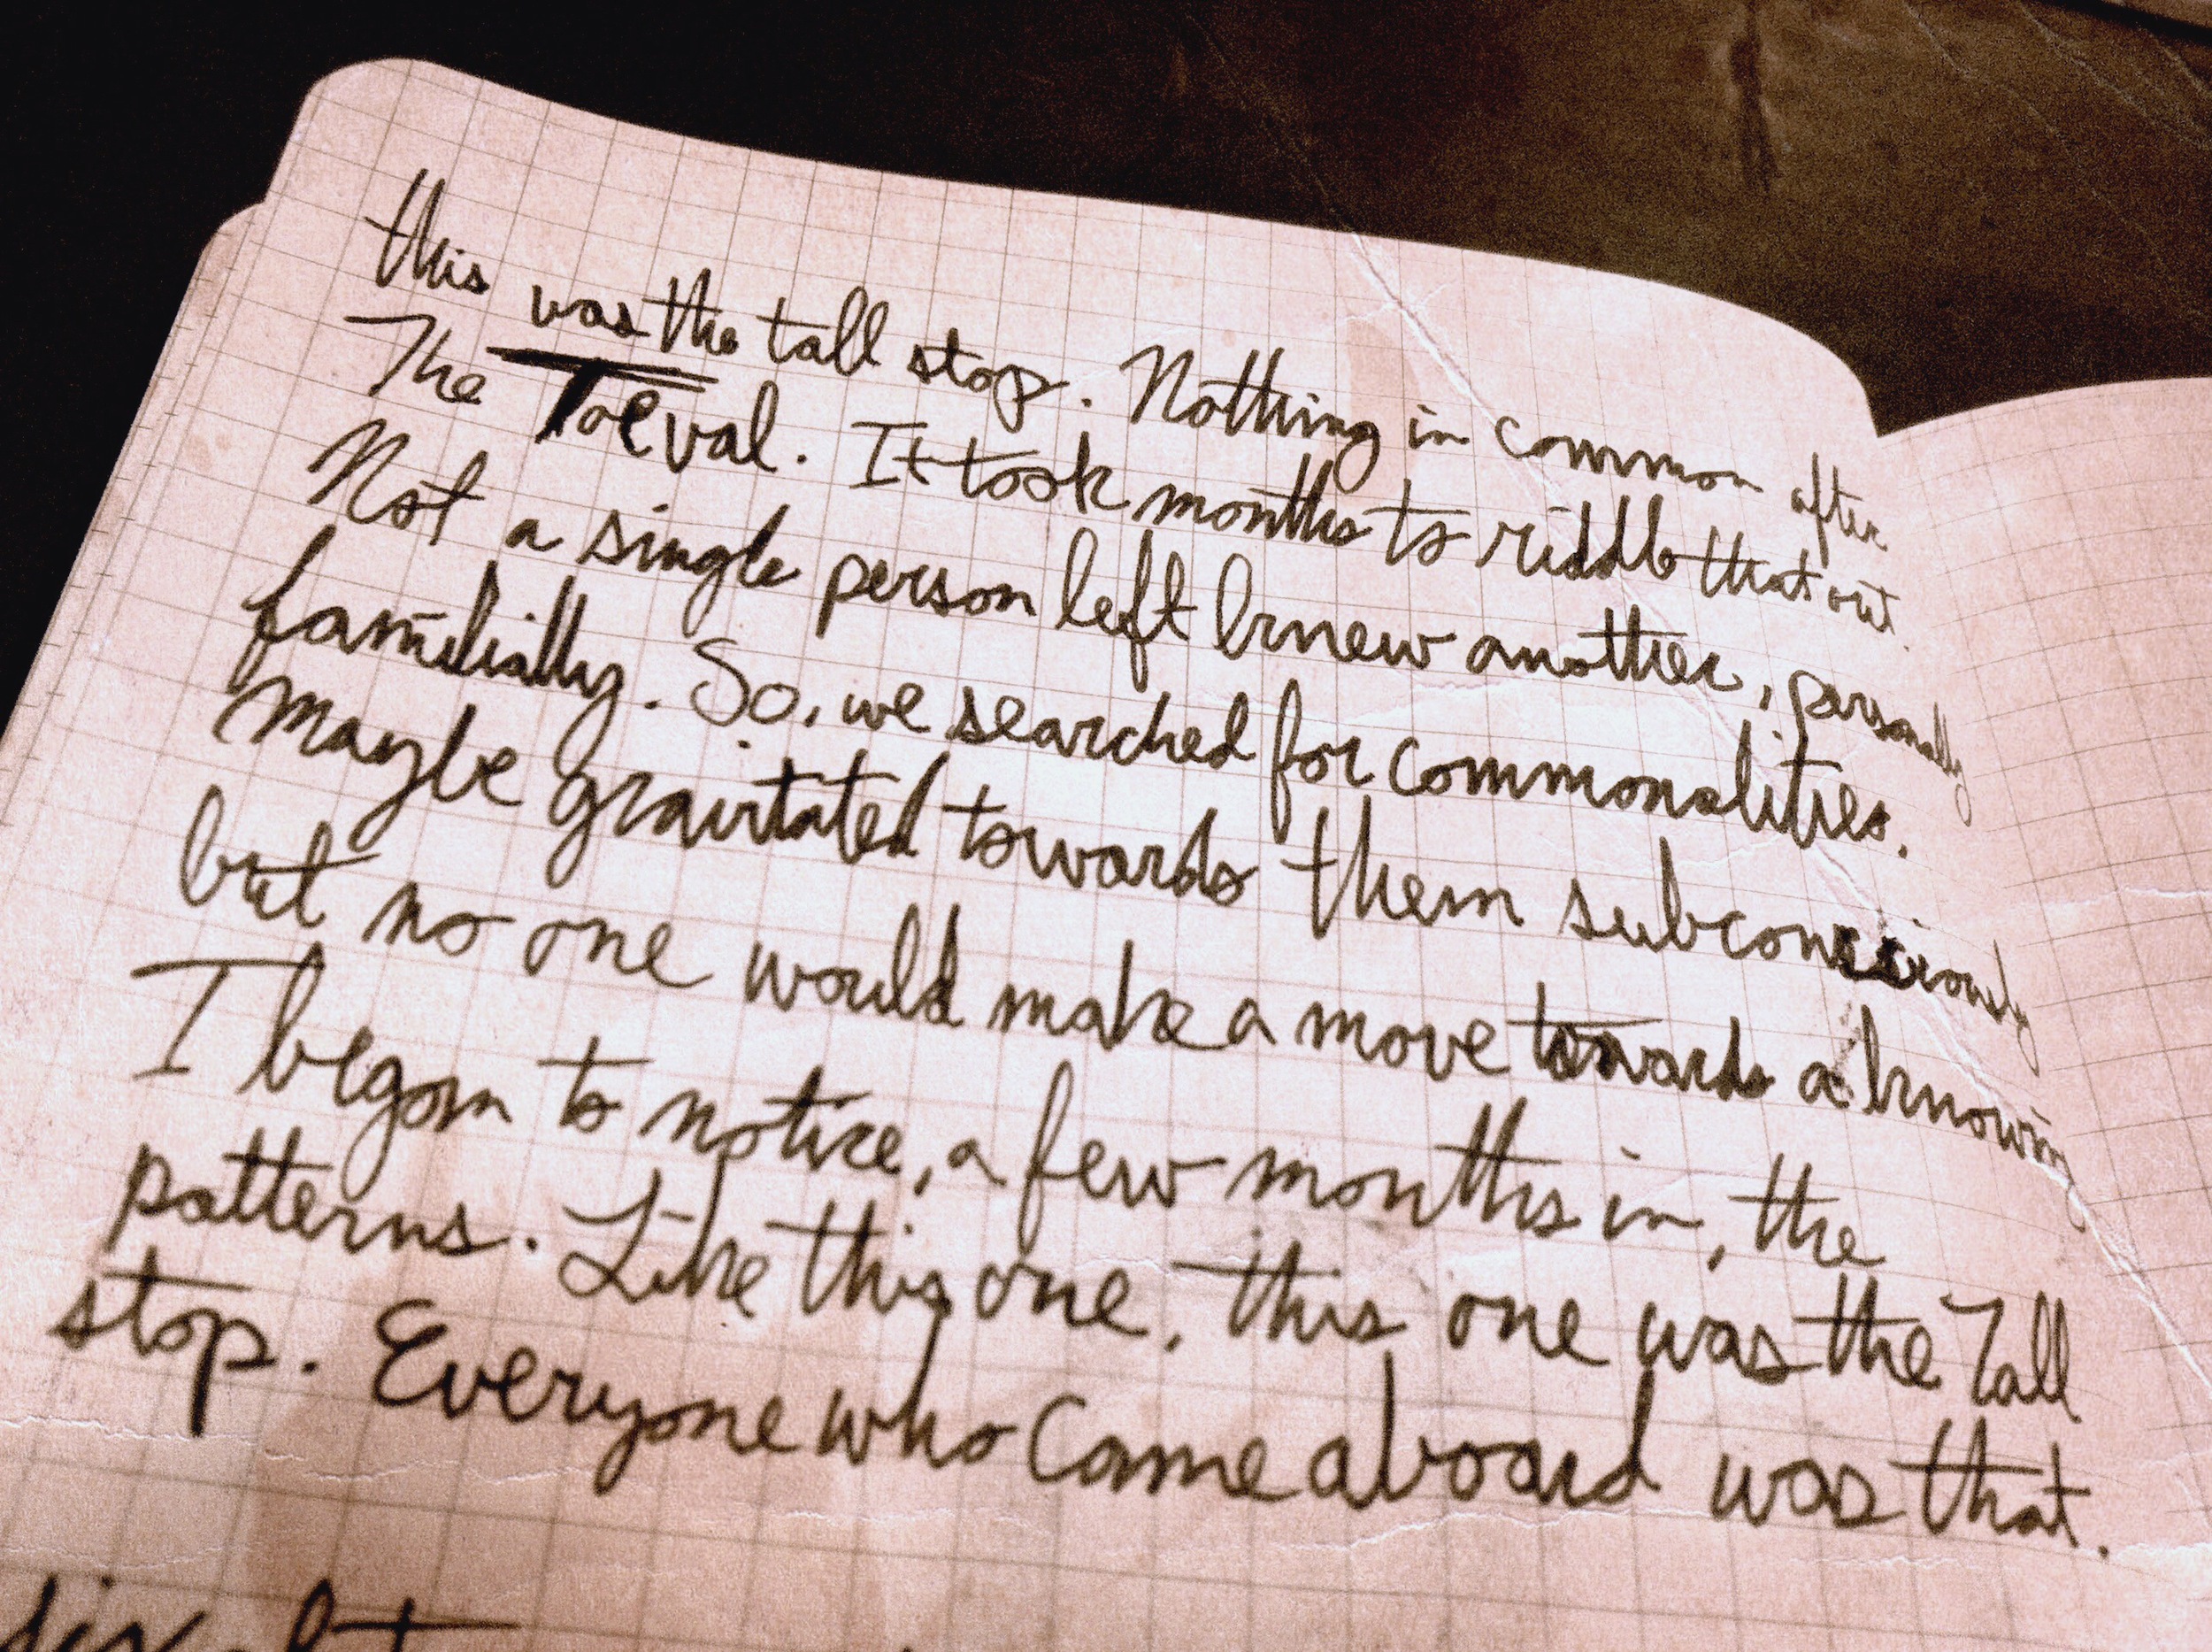 this was the tall stop. Nothing in common after
The Toeval. It took months to riddle that out.
Not a single person left knew another, personally
familially. So, we searched for commonalities.
Maybe gravitated towards them subconsciously
but no one would make a move towards a knowing
I began to notice, a few months in, the
patterns. Like this one, this one was the Tall
stop. Everyone who came aboard was that.